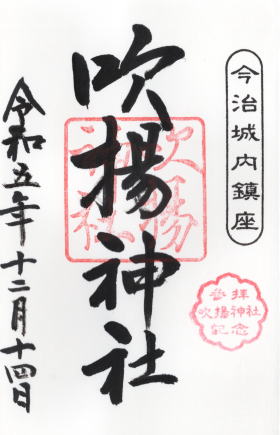 今治城内鎮座
吹揚神社
吹揚
神社
参拝
吹揚神社
記念
令和五年十二月十四日